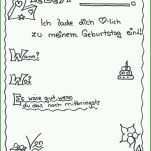 Ich lade dich ❤lich
zu meinem Geburtstag ein!
Wann:
Wo:
Es wäre gut, wenn
du das noch mitbringst: